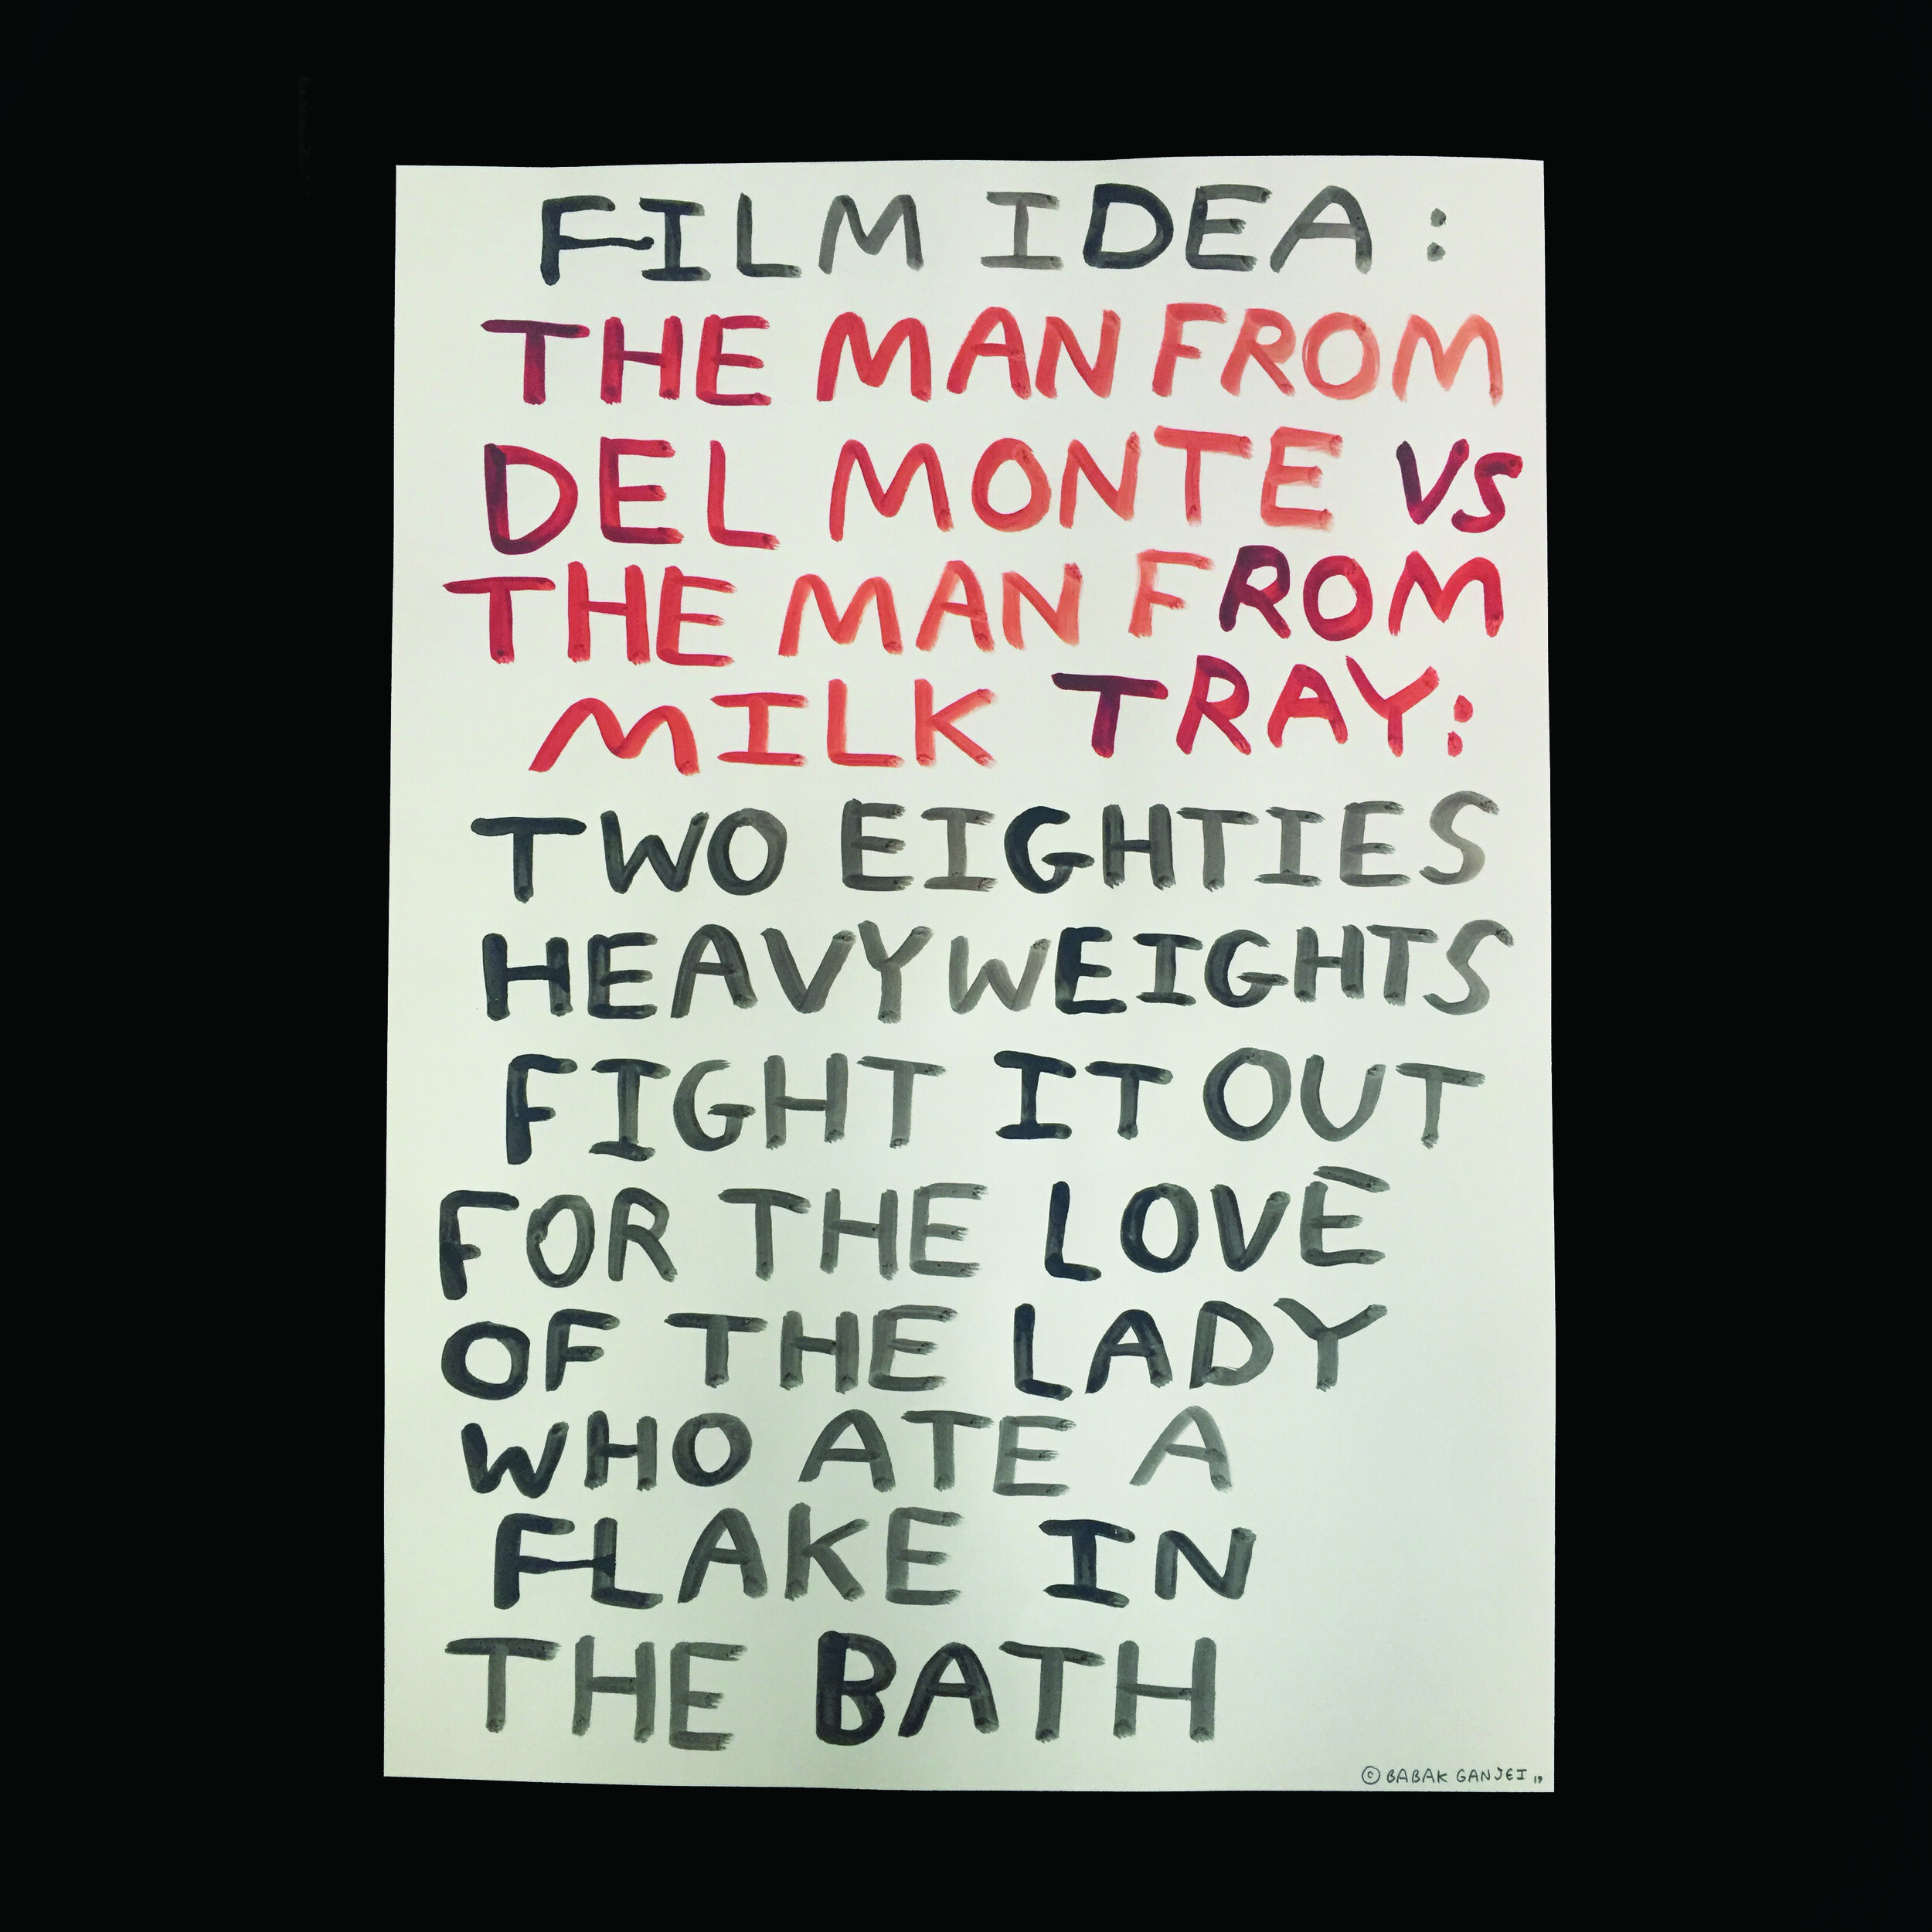 FILM IDEA:
THE MAN FROM
DEL MONTE VS
THE MAN FROM
MILK TRAY:
TWO EIGHTIES
HEAVYWEIGHTS
FIGHT IT OUT
FOR THE LOVE
OF THE LADY
WHO ATE A
FLAKE IN
THE BATH
© BABAK GANJEI 19